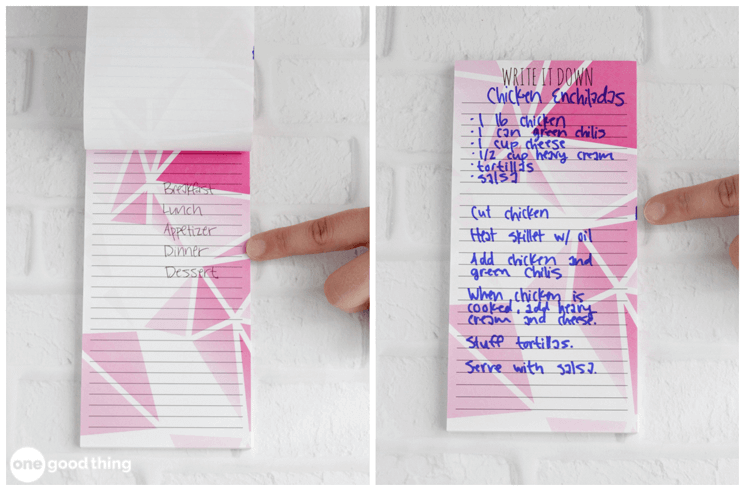 Breakfast
Lunch
Appetizer
Dinner
Dessert
one good thing
WRITE IT DOWN
Chicken Enchiladas
· 1 lb chicken
· 1 can green chilis
· 1 cup cheese
· 1/2 cup heavy cream
· tortillas
· salsa
Cut chicken
Heat skillet w/ oil
Add chicken and
green chilis
When chicken is
cooked, add heavy
cream and cheese.
Stuff tortillas.
Serve with salsa.